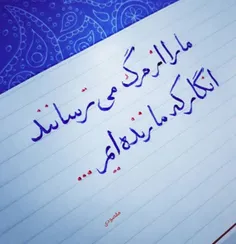 ما را از مرگ می ترسانند
انگار که ما زنده ایم...